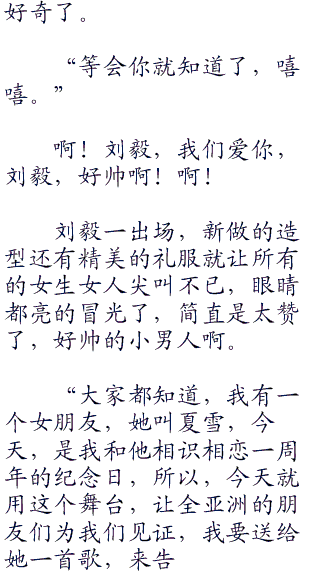 好奇了。
“等会你就知道了，嘻
嘻。”
啊！刘毅，我们爱你，
刘毅，好帅啊！啊！
刘毅一出场，新做的造
型还有精美的礼服就让所有
的女生女人尖叫不已，眼睛
都亮的冒光了，简直是太赞
了，好帅的小男人啊。
“大家都知道，我有一
个女朋友，她叫夏雪，今
天，是我和他相识相恋一周
年的纪念日，所以，今天就
用这个舞台，让全亚洲的朋
友们为我们见证，我要送给
她一首歌，来告